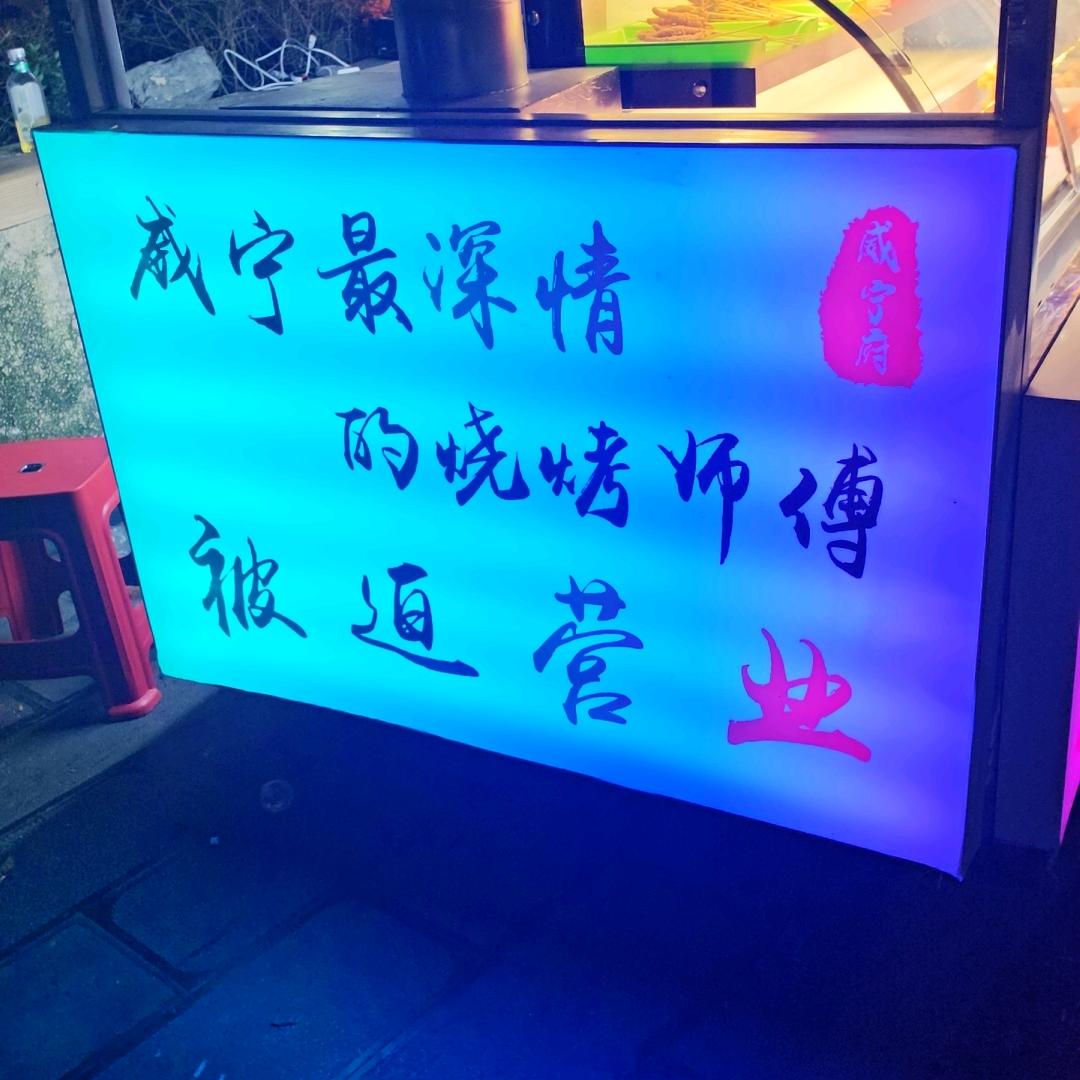 威宁最深情
的烧烤师傅
被迫营业
威宁府